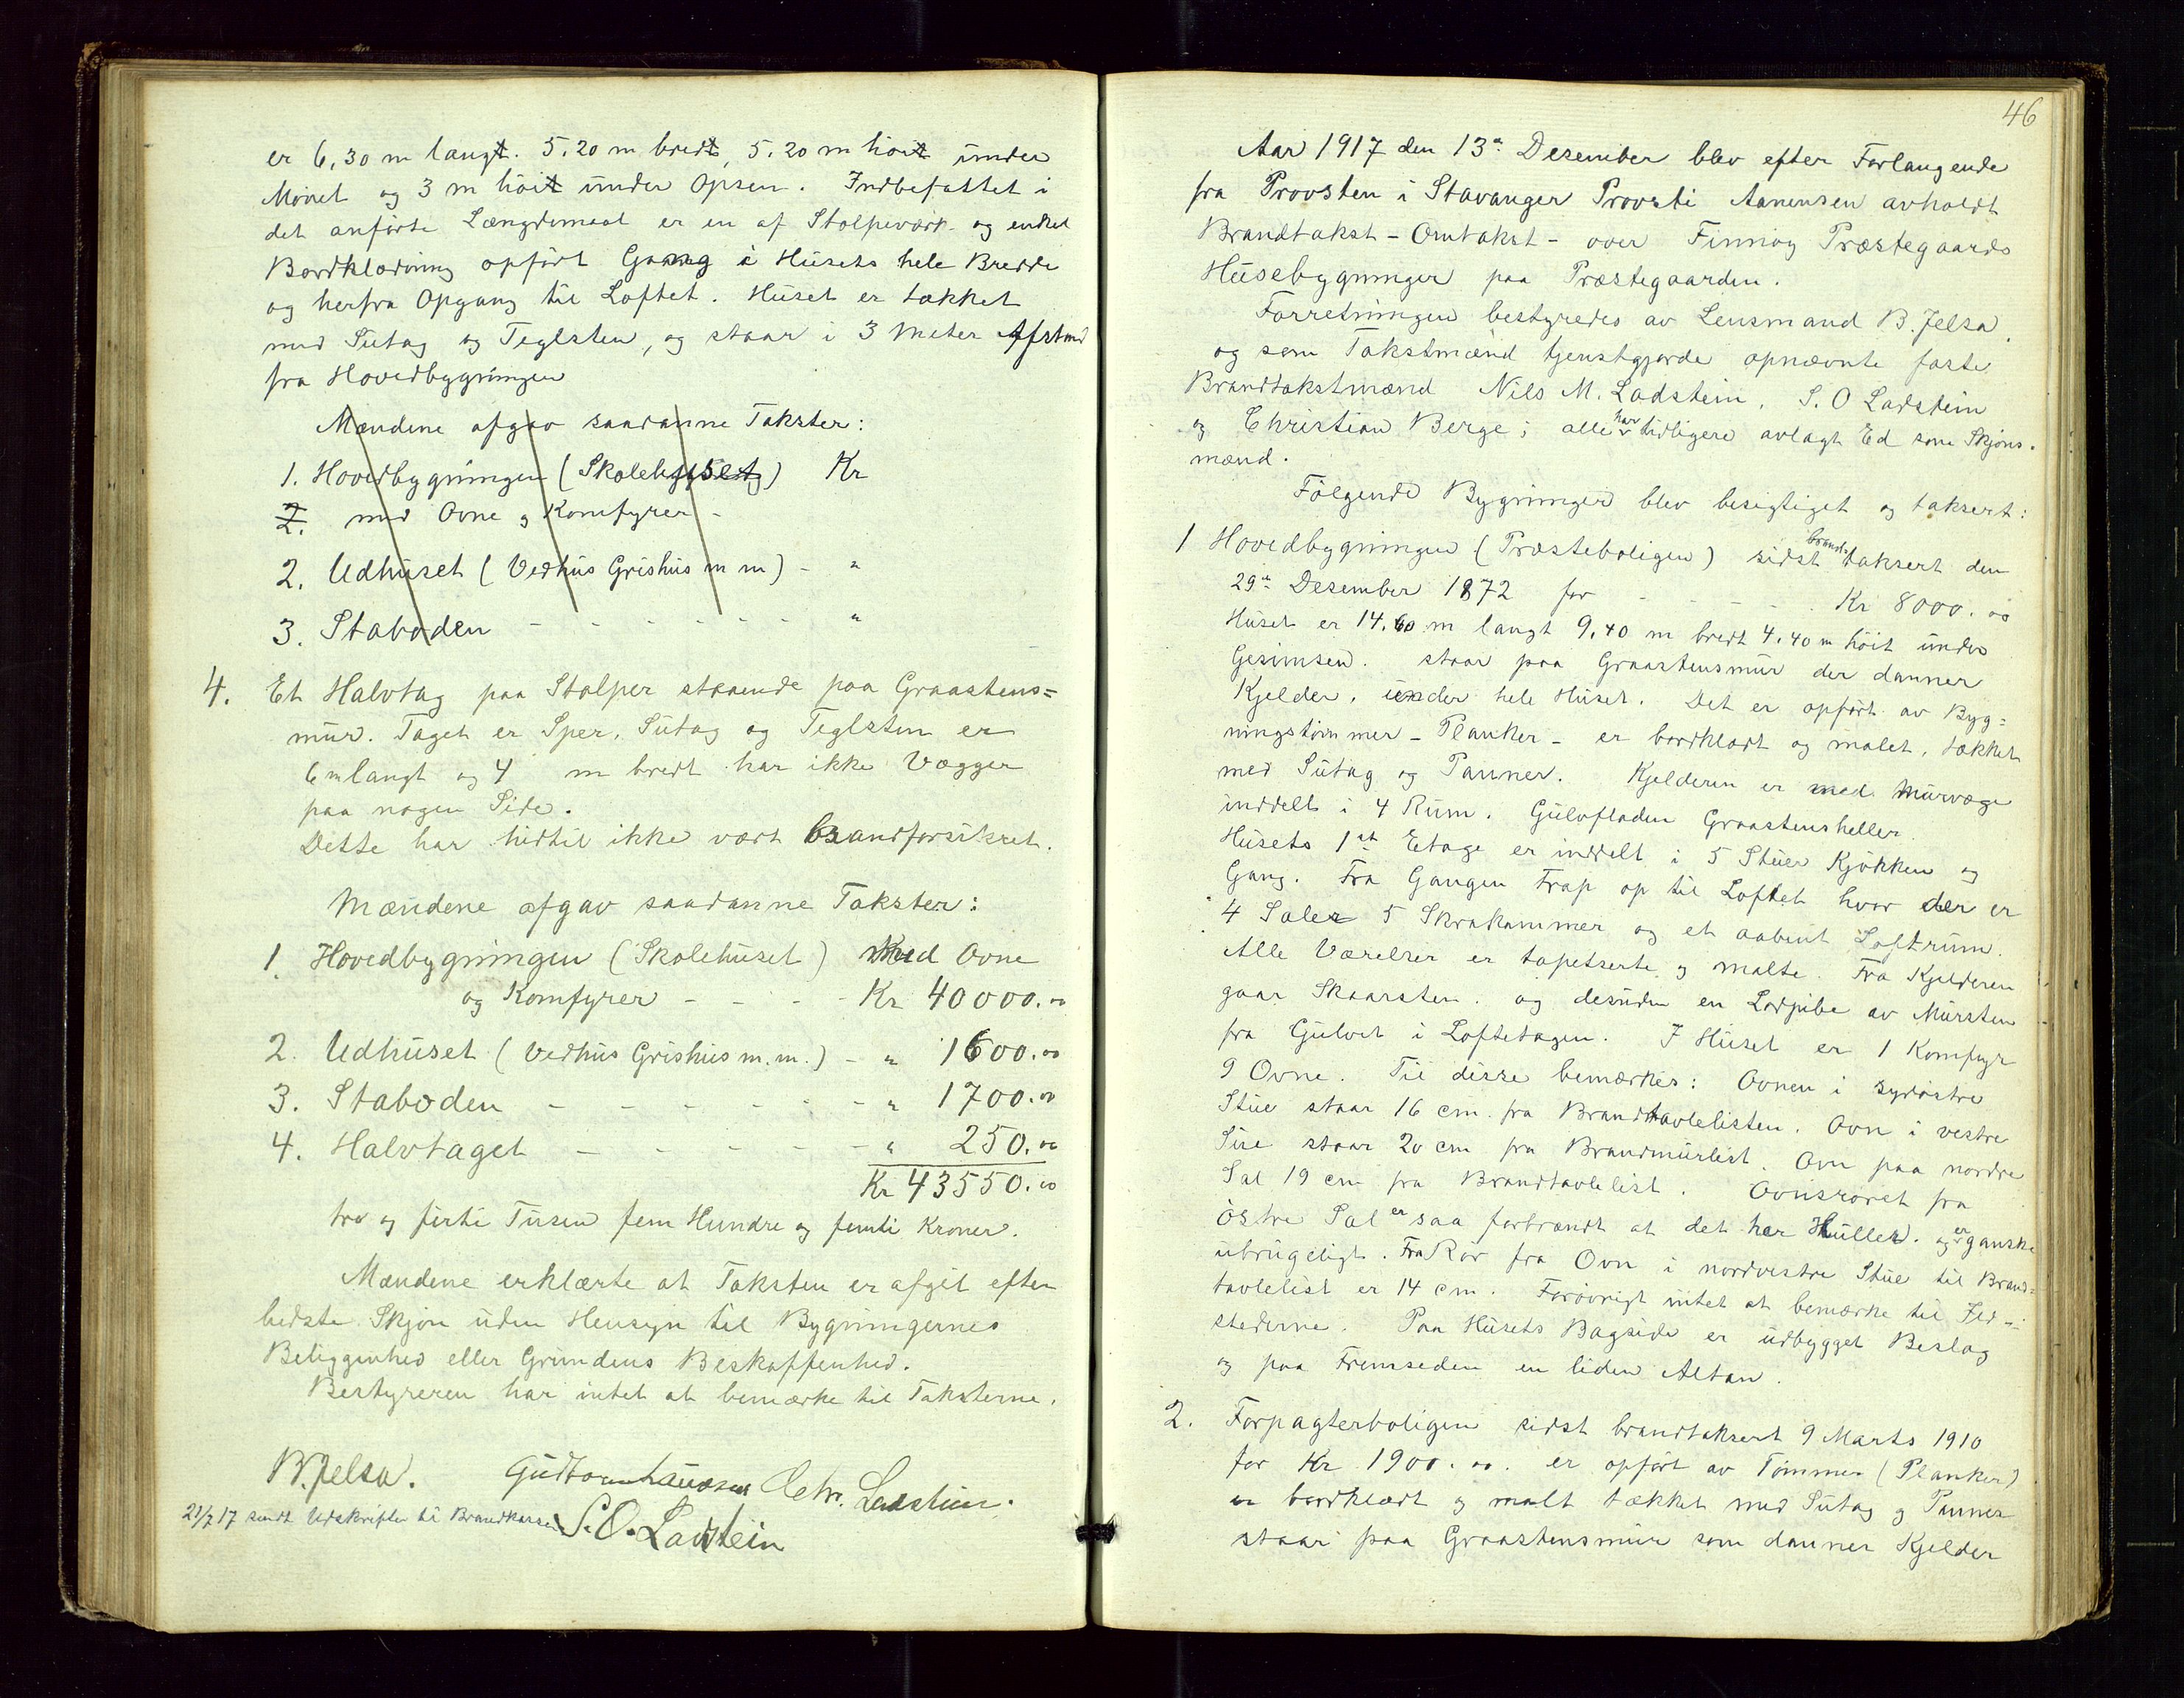 er 6,30 m langt. 5.20 m bredt, 5.20 m höit under
Mönet og 3 m höit under Opsen. Indbefattet i
det anförte Længdemaal er en af Stolpeværk og enkel
Bordklædning opfört Gang i Husets hele Bredde
og herfra Opgang til Loftet. Huset er tækket
med Sutag og Teglsten, og staar i 3 Meter Afstand
fra Hovedbygningen
Mændene afgav saadanne Takster:
1. Hovedbygningen (Skolehuset) Kr
2. med Ovne og Komfyrer -
2. Udhuset (Vedhus Grishus m m) - "
3. Staboden - - - - - - "
4. Et Halvtag paa Stolper staaende paa Graastens=
mur. Taget er Sper, Sutag og Teglsten er
6 m langt og 4 m bredt har ikke Vægger
paa nogen Side.
Dette har hidtil ikke vært brandforsikret.
Mændene afgav saadanne Takster:
1. Hovedbygningen (Skolehuset) med Ovne
og Komfyrer - - - - Kr 40000.00
2. Udhuset (Vedhus Grishus m.m.) - " 1600.00
3. Staboden - - - - - - - " 1700.00
4. Halvtaget - - - - - - " 250.00
Kr 43550.00
tre og förti Tusen fem Hundre og femti Kroner.
Mændene erklærte at Taksten er afgit efter
bedste Skjön uden Hensyn til Bygningernes
Beliggenhed eller Grundens Beskaffenhed.
Bestyreren har intet at bemærke til Taksterne.
B. Jelsa. Chr. Ladstein.
21/7 17 sendt Udskriften til Brandkassen S. O. Ladstein
46
Aar 1917 den 13de Desember blev efter Forlangende
fra Provsten i Stavanger Provsti Aanensen avholdt
Brandtakst - Omtakst - over Finnöy Præstegaards
Husebygninger paa Præstegaarden.
Forretningen bestyredes av Lensmand B. Jelsa,
og som Takstmænd tjenstgjorde opnævnte faste
Brandtakstmænd Nils M. Ladstein, S. O Ladstein
og Christian Berge; alle har tidligere avlagt Ed som Skjöns-
mænd.
Fölgende Bygninger blev besigtiget og taksert:
1 Hovedbygningen (Præsteboligen) sidst brand-taksert den
29de Desember 1872 for - - - - . Kr 8000.00
Huset er 14.60 m langt 9,40 m bredt 4.40 m höit under
Gesimsen. staar paa Graastensmur der danner
Kjelder, under hele Huset. Det er opfört av Byg=
ningstömmer - Planker - er bordklædt og malet, tækket
med Sutag og Panner. Kjelderen er med Murvæge
inddelt i 4 Rum. Gulvfladen Graastensheller.
Husets 1st Etage er inddelt i 5 Stuer Kjökken og
Gang. Fra Gangen Trap op til Loftet hvor der er
4 Saler 5 Skrakammer og et aabent Loftrum.
Alle Værelser er tapetserte og malte. Fra Kjelderen
gaar Skaarsten. og desuden en Lodpibe av Mursten
fra Gulvet i Loftetagen. I Huset er 1 Komfyr
9 Ovne. Til disse bemærkes: Ovnen i sydöstre
Stue staar 16 cm. fra Brandtavlelisten. Ovn i vestre
Stue staar 20 cm fra Brandmurlist. Ovn paa nordre
Sal 19 cm fra Brandtavlelist. Ovnsröret fra
östre Sal er saa forbrændt at det har Huller. og er ganske
ubrugeligt. Fra Rör fra Ovn i nordvestre Stue til Brand=
tavlelist er 14 cm. Forövrigt intet at bemærke til Ild=
stederne. Paa Husets Bagside er udbygget Beslag
og paa Fremsiden en liden Altan.
2. Forpagterboligen sidst brandtaksert 9 Marts 1910
for Kr 1900.00. er opfört av Tömmer (Planker)
er bordklædt og malt tækket med Sutag og Panner
staar paa Graastensmur som danner Kjelder